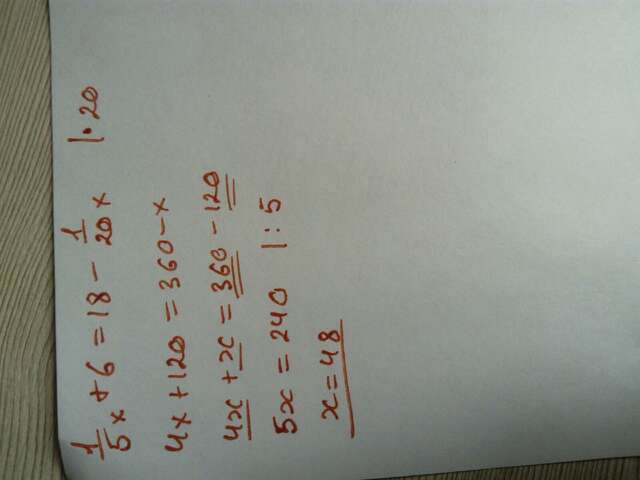 1/5 x + 6 = 18 - 1/20 x |•20
4x + 120 = 360 - x
4x + x = 360 - 120
5x = 240 |:5
x = 48